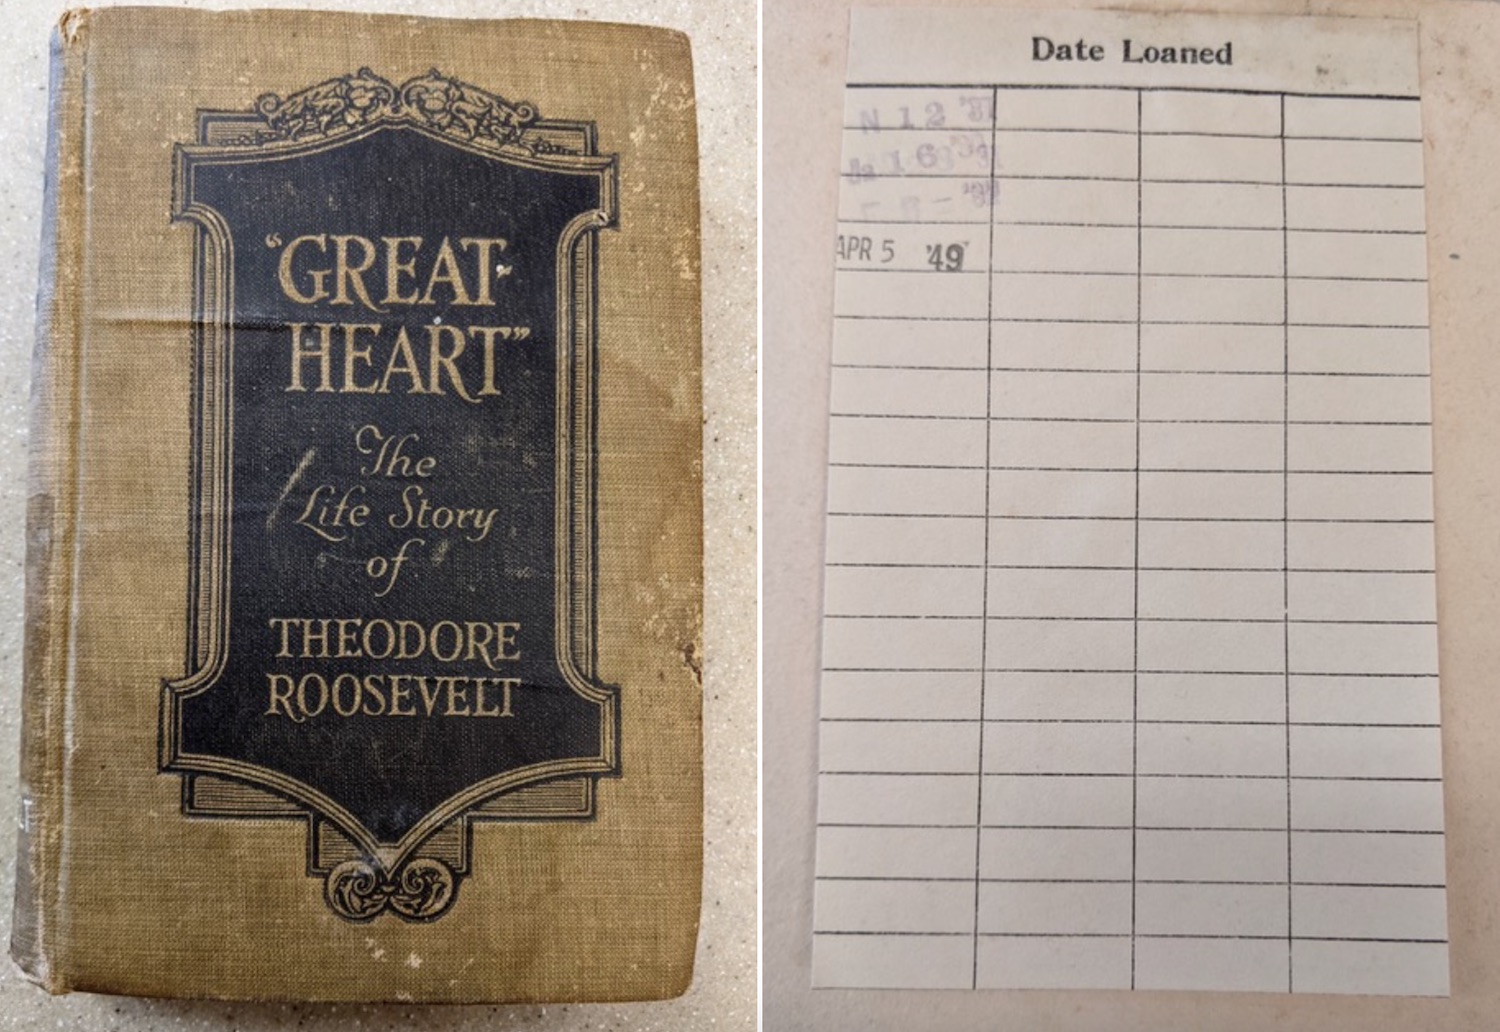 "GREAT-
HEART"
The
Life Story
of
THEODORE
ROOSEVELT
Date Loaned
N 12
16
APR 5 '49